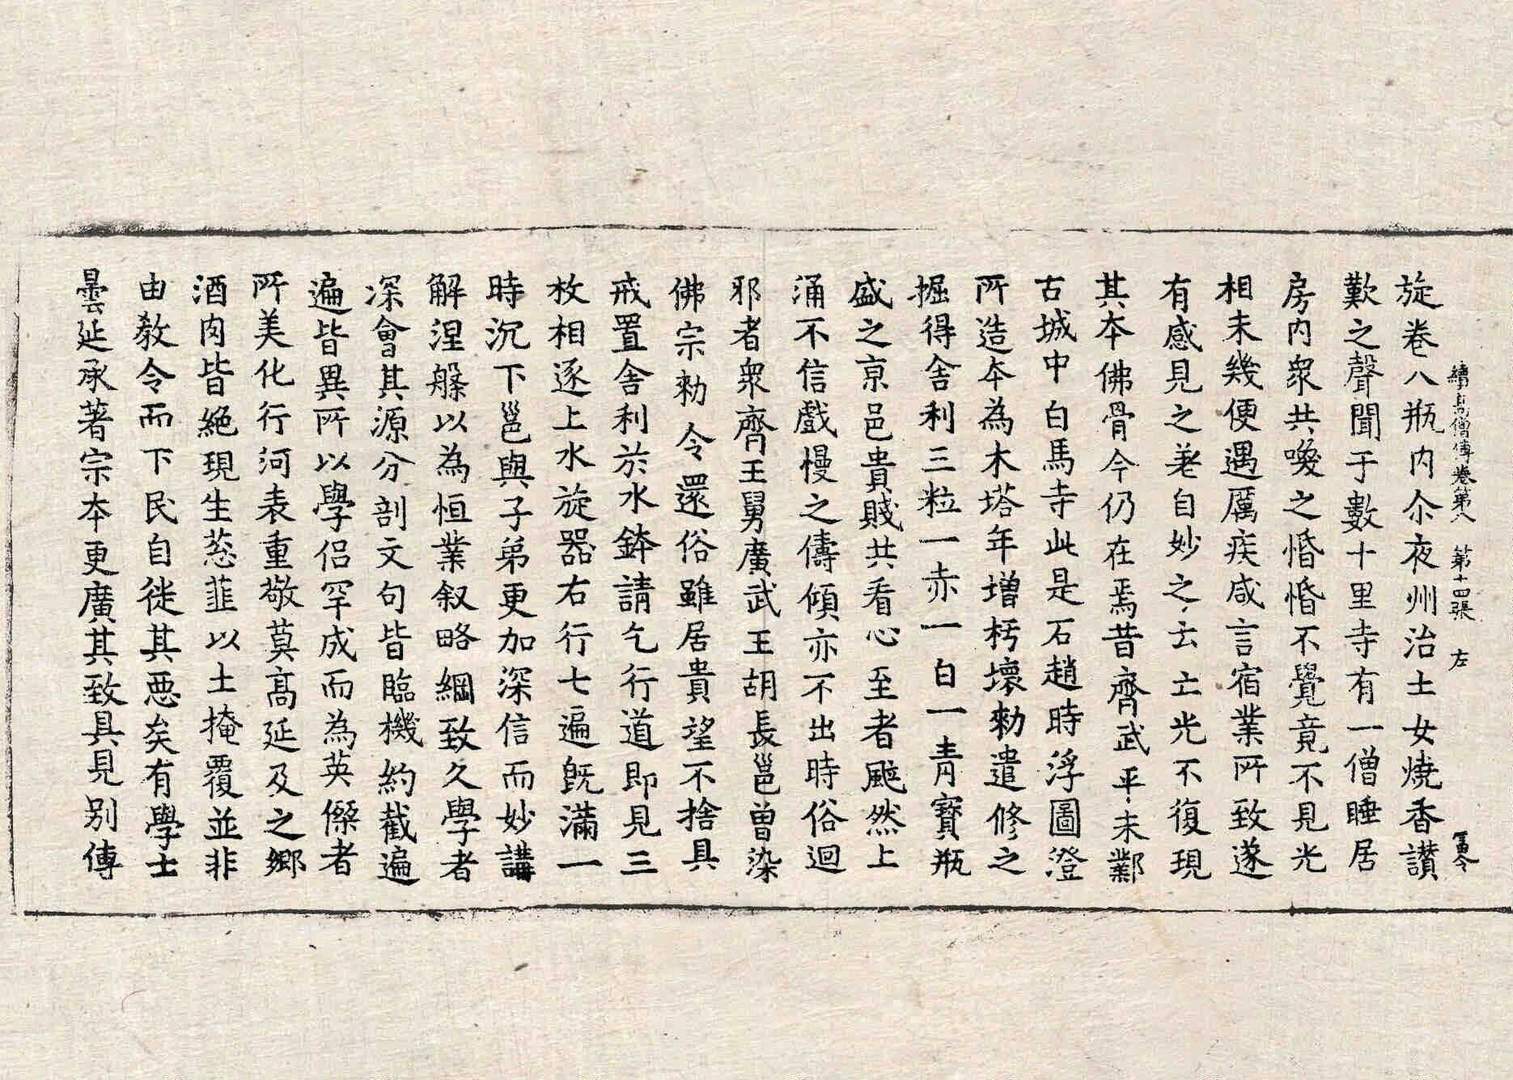 續高僧傳卷第八　第十四張　左
旋卷八瓶內尒夜州治士女燒香讃
歎之聲聞于數十里寺有一僧睡居
房內衆共喚之惛惛不覺竟不見光
相未幾便遇厲疾咸言宿業所致遂
有感見之差自妙之云云光不復現
其本佛骨今仍在焉昔齊武平末鄴
古城中白馬寺此是石趙時浮圖澄
所造本為木塔年增朽壞勑遣修之
掘得舍利三粒一赤一白一青寶瓶
盛之京邑貴賤共看心至者颰然上
涌不信戲慢之儔傾亦不出時俗迴
邪者衆齊王舅廣武王胡長邕曾染
佛宗勑令還俗雖居貴望不捨具
戒置舍利於水鉢請乞行道即見三
枚相逐上水旋器右行七遍旣滿一
時沉下邕與子弟更加深信而妙講
解涅槃以為恒業叙略綱致久學者
深會其源分剖文句皆臨機約截遍
遍皆異所以學侶罕成而為英傑者
所美化行河表重敬莫高延及之鄉
酒肉皆絕現生葱韮以土掩覆並非
由教令而下民自徙其惡矣有學士
曇延承著宗本更廣其致具見別傳